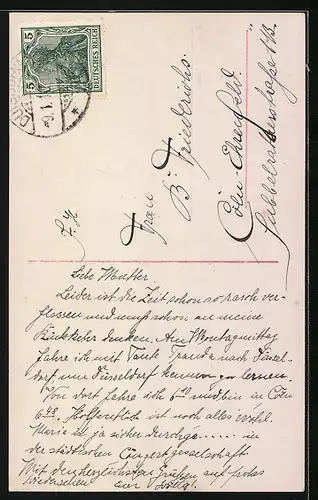 5
5
DEUTSCHES REICH
Z. H.
Frau
B. Friederichs.
Cöln-Ehrenfeld.
Subbelratherstraße 113.
Liebe Mutter.
Leider ist die Zeit schon so rasch ver-
flossen und muß schon an meine
Rückkehr denken. Am Montagmittag
fahre ich mit Tante nach Düssel-
dorf, um Düsseldorf kennen zu lernen.
Von dort fahre ich 6 und bin in Cöln
6 48. Hoffentlich ist noch alles wohl.
Maria ist ja sicher durchge...... in
der städtischen
Mit den herzlichsten Grüßen auf frohes
Wiedersehen